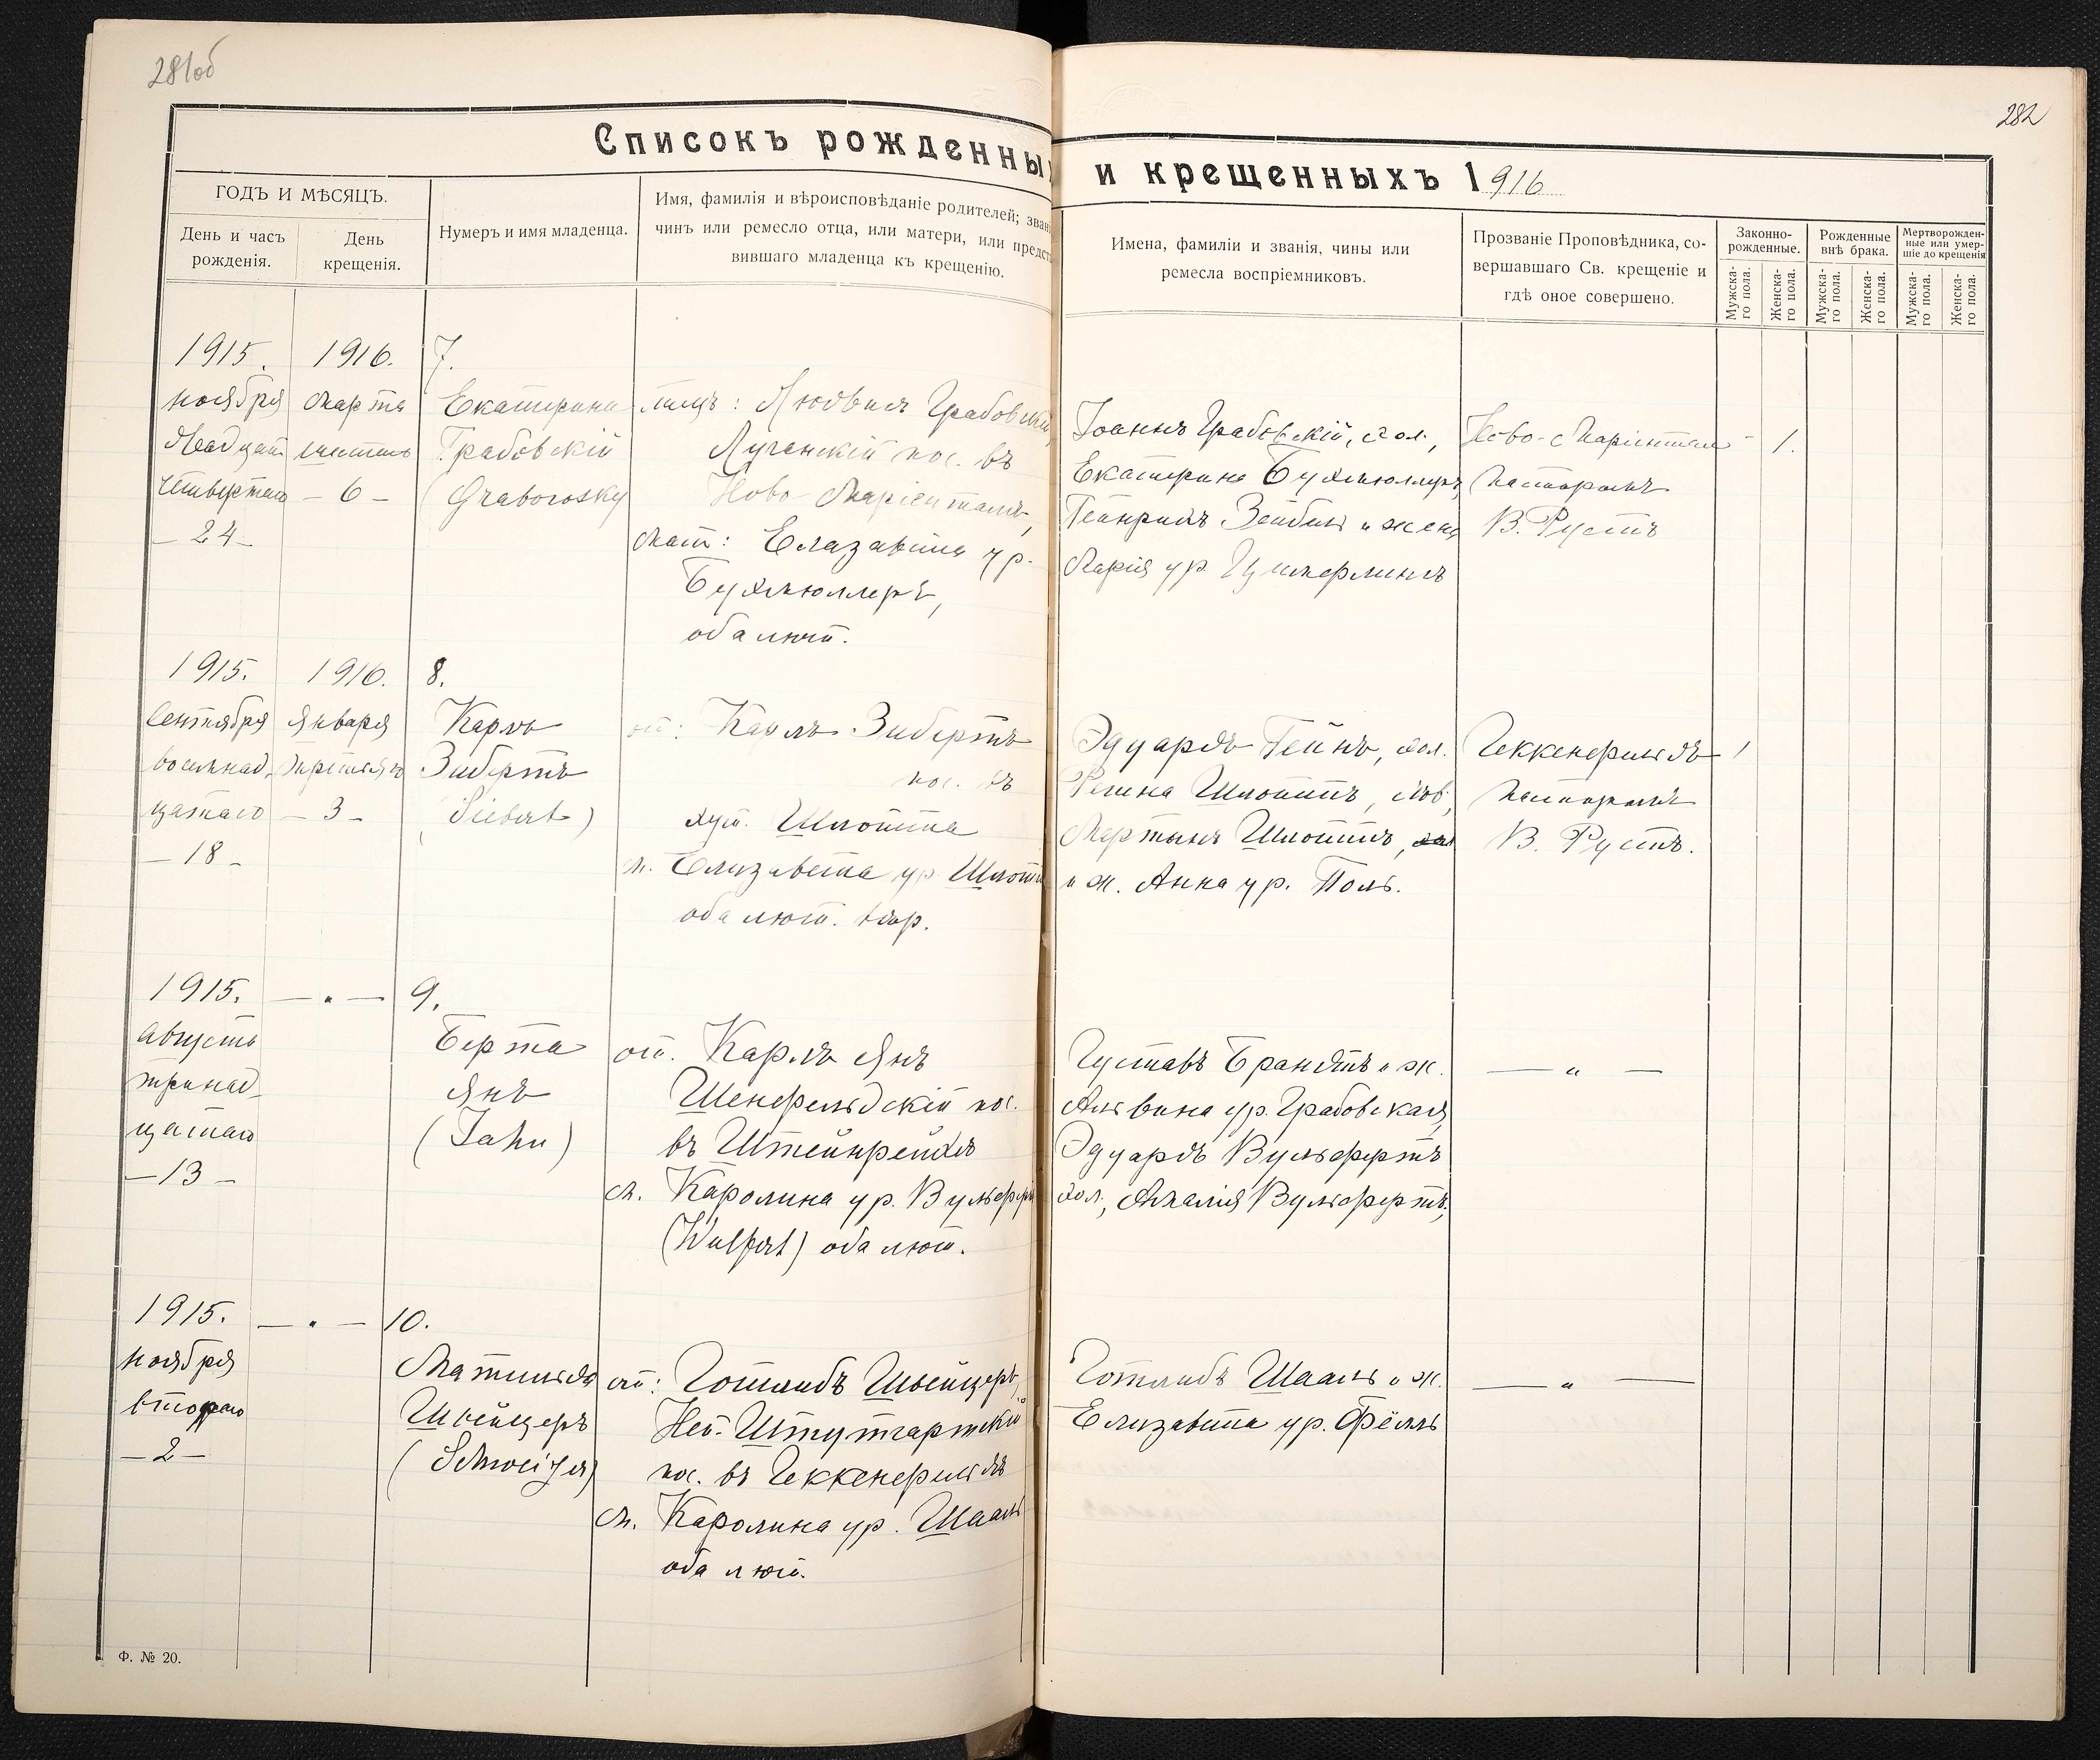 281об
282
Списокъ рожденны
и крещенныхъ 1916
ГОДЪ И МѢСЯЦЪ.
День и часъ рожденія.
День крещенія.
Нумеръ и имя младенца.
Имя, фамилія и вѣроисповѣданіе родителей; зван
чинъ или ремесло отца, или матери, или предст
вившаго младенца къ крещенію.
Имена, фамиліи и званія, чины или
ремесла воспріемниковъ.
Прозваніе Проповѣдника, со-
вершавшаго Св. крещеніе и
гдѣ оное совершено.
Законно-
рожденные.
Рожденные
внѣ брака.
Мертворожден-
ные или умер-
шіе до крещенія
Мужска-
го пола.
Женска-
го пола.
Мужска-
го пола.
Женска-
го пола.
Мужска-
го пола.
Женска-
го пола.
1915.
ноября
четвертаго
— 24 —
1916.
марта
— 6 —
7.
Екатерина
Грабовскій
Людвигъ Грабовскій
Луганскій пос. въ
Ново-Маріенталѣ,
мат: Елизавета ур.
Бухмюллеръ,
оба лют.
Іоаннъ Грабовскій, хол.,
Екатерина Бухмюллеръ,
Гейнрихъ Зейбель и жена
Марія ур. Цимерлингъ
Ново-Маріенталь
пасторомъ
В. Рустъ
1.
1915.
Сентября
восемнад-
цатаго
— 18 —
1916.
Января
третьяго
— 3 —
8.
Карлъ
Зибертъ
(Siebert)
от: Карлъ Зибертъ
пос. въ
хут. Шлотта
м. Елизавета ур. Шлоттъ
оба лют.
Эдуардъ Гейнъ, хол.
Регина Шлоттъ,
Мартынъ Шлоттъ,
и ж. Анна ур. Поль.
Геккенфельдъ
пасторомъ
В. Рустъ.
1
1915.
Августа
тринад-
цатаго
— 13 —
— " —
9.
Берта
Янъ
(Jahn)
от. Карлъ Янъ
Шенфельдскій пос.
въ Штейнрейхѣ
м. Каролина ур. Вульферт
(Wulfert) оба лют.
Густавъ Брандтъ и ж.
Альвина ур. Грабовская,
Эдуардъ Вульфертъ
хол., Амалія Вульфертъ,
— " —
1915.
ноября
второго
— 2 —
— " —
10.
Матильда
Швейцеръ
(Schweizer)
от: Готлибъ Швейцеръ,
Ней-Штутгартскій
пос. въ Геккенфельдѣ
м. Каролина ур. Шааль
оба лют.
Готлибъ Шааль и ж.
Елизавета ур. Фёлль
— " —
Ф. № 20.